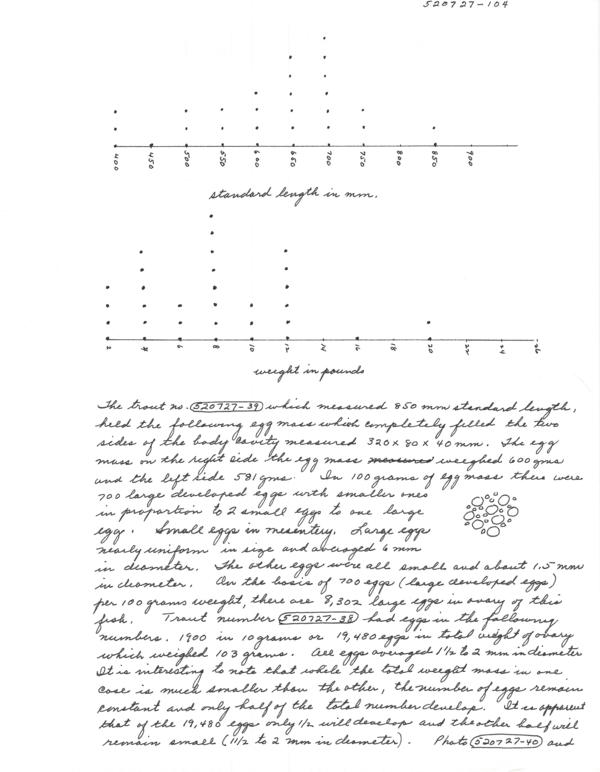 520727-104
400 450 500 550 600 650 700 750 800 850 900
standard length in mm.
2 4 6 8 10 12 14 16 18 20 22 24 26
weight in pounds
The trout no. 520727-39 which measured 850 mm standard length,
held the following egg mass which completely filled the two
sides of the body cavity measured 320 x 80 x 40 mm. The egg
mass on the right side the egg mass measured weighed 600 gms
and the left side 581 gms. In 100 grams of egg mass there were
700 large developed eggs with smaller ones
in proportion to 2 small eggs to one large
egg. Small eggs in mesentery. Large eggs
nearly uniform in size and averaged 6 mm
in diameter. The other eggs were all small and about 1.5 mm
in diameter. On the basis of 700 eggs (large developed eggs)
per 100 grams weight, there are 8,302 large eggs in ovary of this
fish. Trout number 520727-38 had eggs in the following
numbers. 1900 in 10 grams or 19,480 eggs in total weight of ovary
which weighed 103 grams. All eggs averaged 1 1/2 to 2 mm in diameter
It is interesting to note that while the total weight mass in one
case is much smaller than the other, the number of eggs remain
constant and only half of the total number develop. It is apparent
that of the 19,480 eggs only 1/2 will develop and the other half will
remain small (1 1/2 to 2 mm in diameter). Photo 520727-40 and